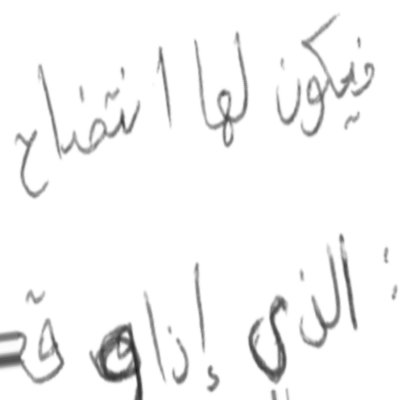 فيكون لها انتضاح
: الذي إذا و قـ